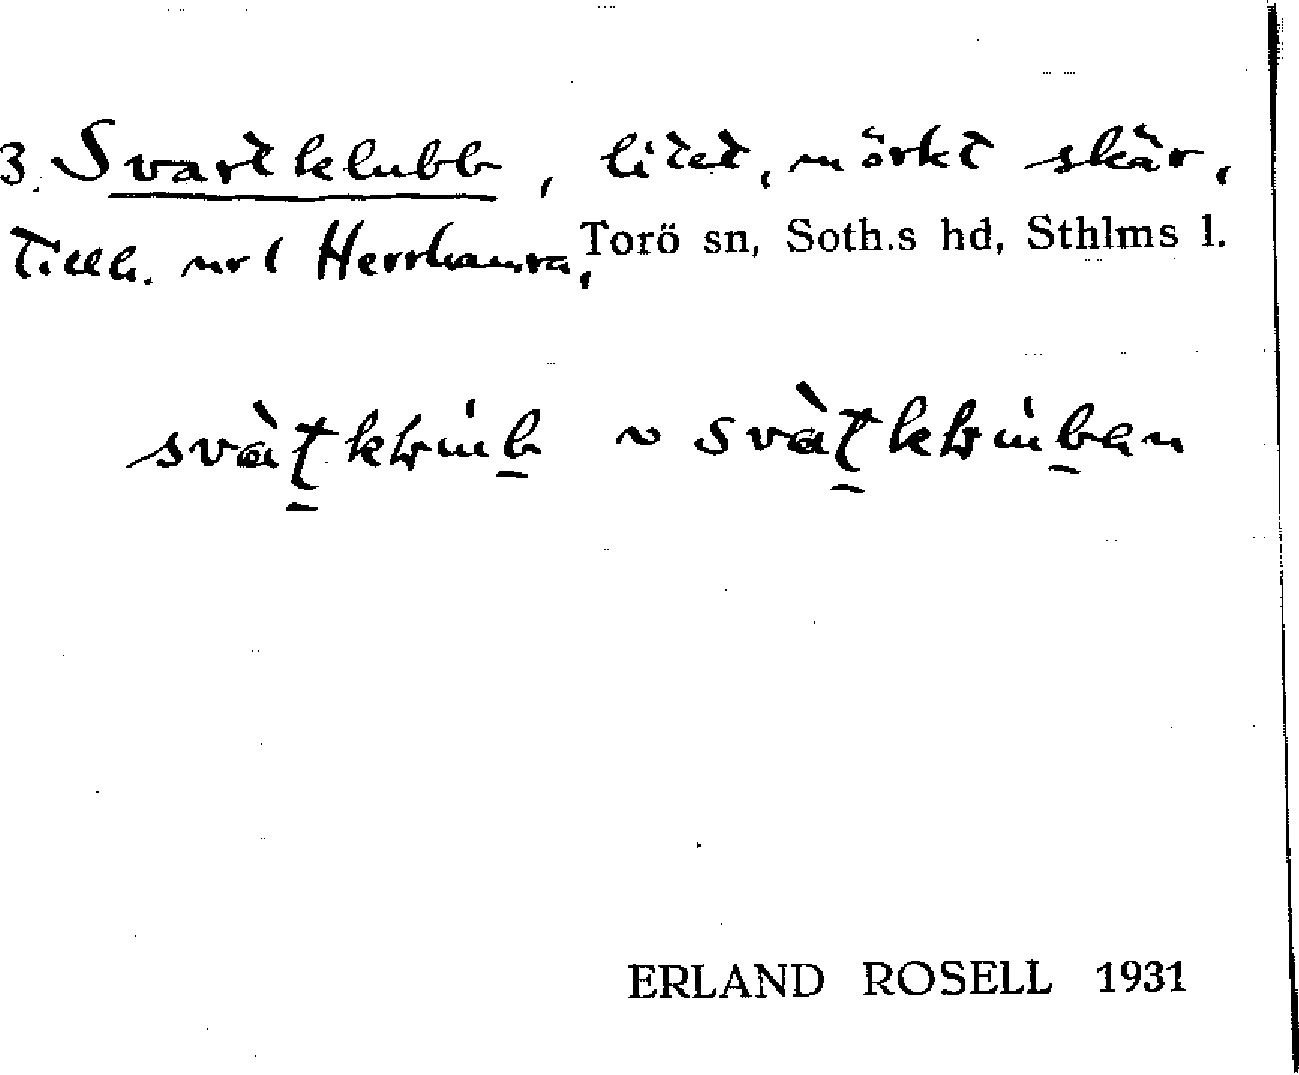 3. Svartklubb, litet, mörkt skär,
Tillh. nr 1 Herrhamra, Torö sn, Soth.s hd, Sthlms l.
svàʈklub ~ svàʈkluban
ERLAND ROSELL 1931